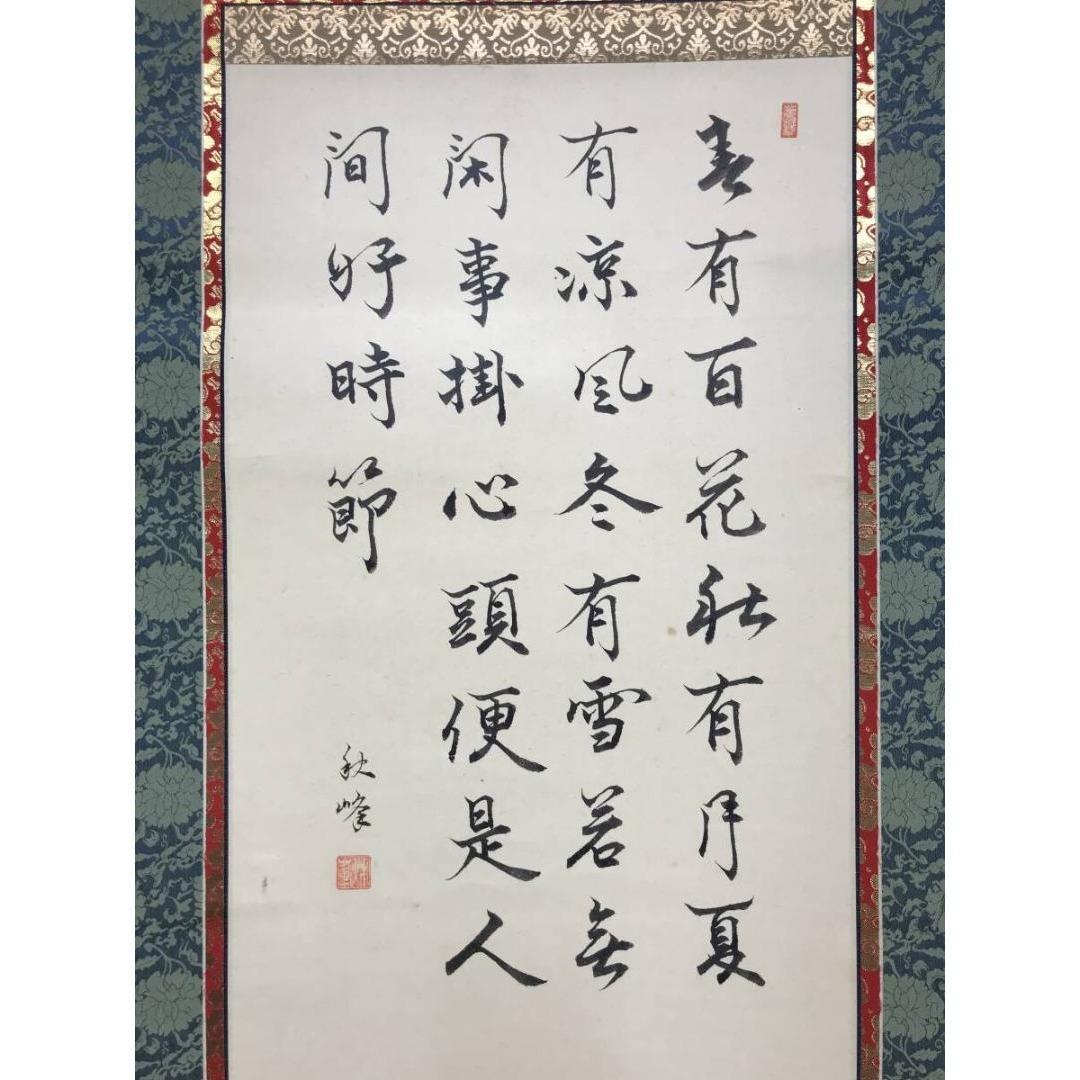 春有百花秋有月夏
有凉风冬有雪若無
闲事掛心頭便是人
间好時節
秋峰